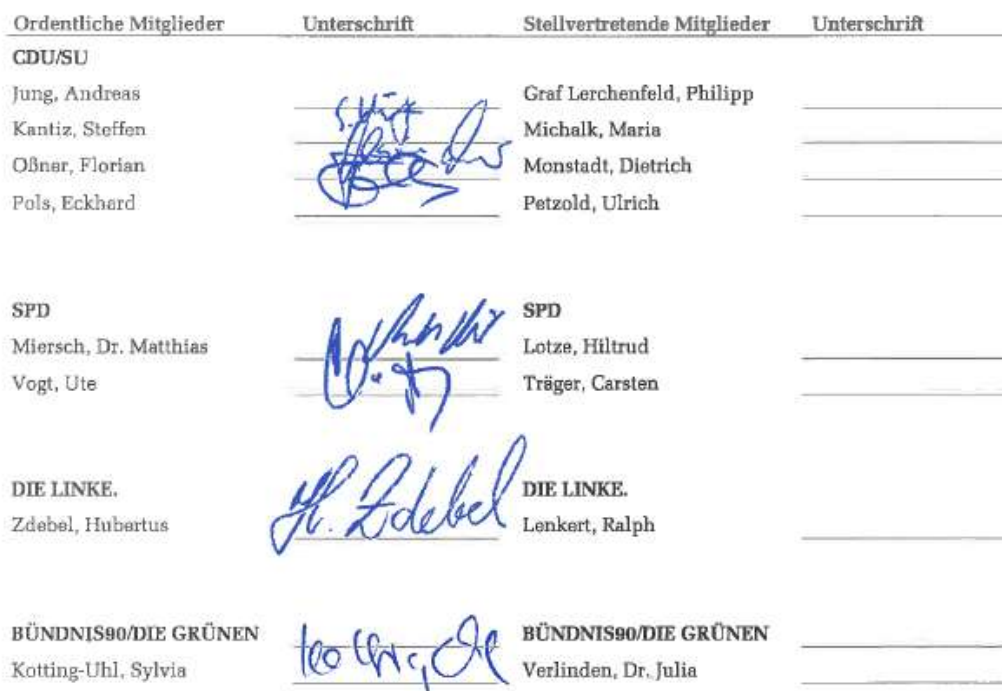 Ordentliche Mitglieder Unterschrift Stellvertretende Mitglieder Unterschrift
CDU/SU
Jung, Andreas Graf Lerchenfeld, Philipp
Kantiz, Steffen Michalk, Maria
Oßner, Florian Monstadt, Dietrich
Pols, Eckhard Petzold, Ulrich
SPD SPD
Miersch, Dr. Matthias Lotze, Hiltrud
Vogt, Ute Träger, Carsten
DIE LINKE. DIE LINKE.
Zdebel, Hubertus H. Zdebel Lenkert, Ralph
BÜNDNIS90/DIE GRÜNEN BÜNDNIS90/DIE GRÜNEN
Kotting-Uhl, Sylvia Verlinden, Dr. Julia